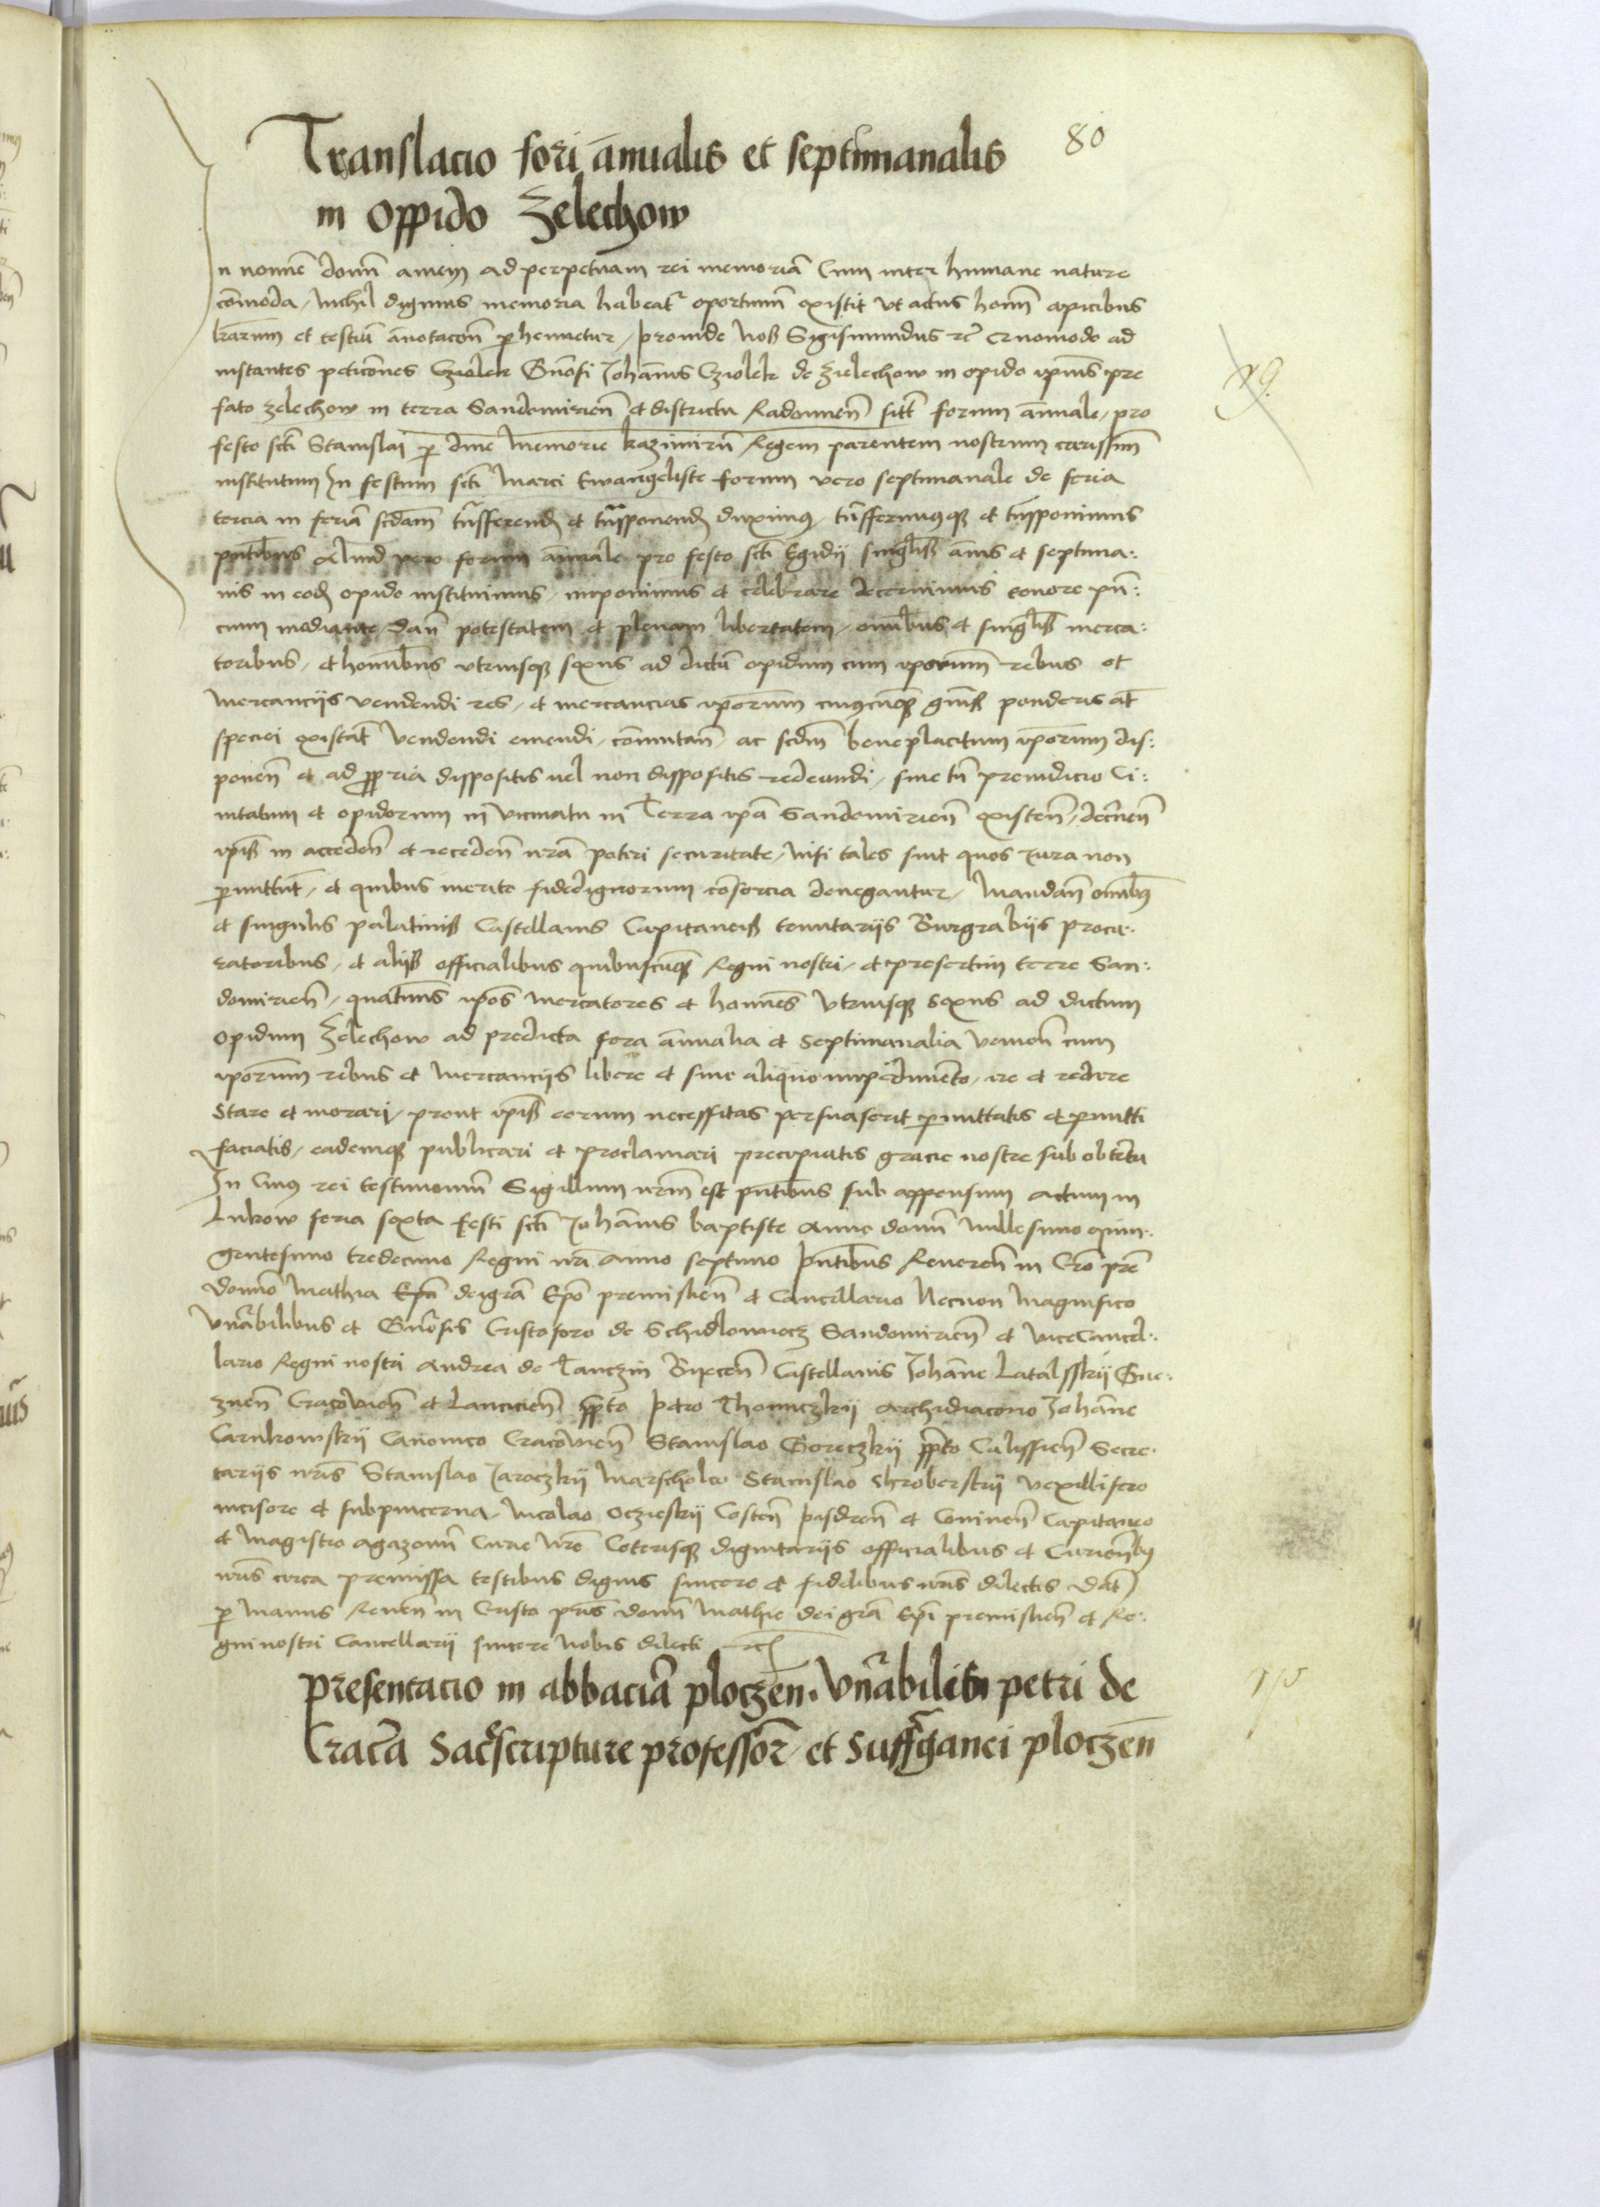 80
Translacio fori ānualis et septimanalis
in oppido Zelechow
In nomīe domī amen ad perpetuam rei memoriā Cum inter humane nature
cōmoda / Nichil dignius memoria habeatr oportunū existit vt actus homī apicibus
lrarum et testiū annotacōn perhennetur / proinde Nos Sigismundus rc ad
instantes peticōnes Gnōsi Johānis Cziolek de Zelechow in opido ipius pre
fato Zelechow in terra Sandomiriēn et districtu Radomiēn sitū forum annuale / pro
festo scti Stanislai per diue memorie kazimirū Regem parentem nostrum carissim̄
institutum In festum scti Marci Ewangeliste forum vero septimanale de feria
tercia in feriā scdam trāsferend et trāsponend duximus, trāsferimusqȝ et trāsponimus
pntibus Aliud vero forum annuale pro festo scti Egidij singulis annis et septima:
nis in eodē opido instituimus, imponimus et celebrare decernimus tenore pn̄:
cium mediante / dan̄ potestatem et plenam libertatem / omībus et singlis merca:
toribus, et homībus vtriusqȝ sexus ad dictū opidum cum iporum rebus et
mercancijs vendendi res, et mercancias iporum cuiuscunqȝ gn̄is ponderis aut
speciei existāt vendendi emendi, cōmutan̄, ac scdm beneplacitum iporum dis:
ponen̄ et ad ppria dispositis vel non dispositis redeundi, sine tn̄ preiudicio Ci:
uitatum et opidorum in vicinatu in Terra ipa Sandomiriēn existen̄, decernen̄
ipis in acceden̄ et receden̄ nrā poteri securitate, nisi tales sint quos iura non
permittūt, et quibus merito fidedignorum cōsorcia denegantur, Mandan̄ omībus
et singulis palatinis Castellanis Capitaneis tenutarijs Burgrabijs procu:
ratoribus, et alijs officialibus quibuscūqȝ Regni nostri, et presertim terre San:
domiriēn, quatinus ipos mercatores et homīes vtriusqȝ sexus ad dictum
opidum Zelechow ad predicta fora annualia et septimanalia venien̄ cum
iporum rebus et mercancijs libere et sine aliquo impedimento, ire et redire
stare et morari, prout ipis eorum necessitas persuaserit permittatis et permitti
faciatis, eademqȝ publicari et proclamari precipiatis gracie nostre sub obtētu
In Cuius rei testimonium Sigillum nrm est pntibus sub appensum Actum in
Lukow feria sexta festi scti Johānis baptiste Anno domī Millesimo quin:
gentesimo tredecimo Regni nrī anno septimo pntibus Reueren̄ in Cro pre
domīo Mathia dei grā Epo premislien̄ et Cancellario Necnon Magnifico
Venrābilibus et Gnrōsis Cristoforo de Schidlowiecz Sandomirien̄ et vicecancel:
lario Regni nostri Andrea de Tanczin Biecen̄ Castellanis Johāne Latalsskij Gne:
znen̄ Cracovien̄ et Lancicien̄ ppto petro Thomiczkij Archidiacono Johāne
Carnkowskij Canonico Cracovien̄ Stanislao Goreczkij ppto Calissien̄ Secre:
tarijs nris Stanislao Jaroczkij Marschalco Stanislao Chroberskij vexillifero
incisore et subpincerna, Nicolao Oczieskij Costen̄ pisdren̄ et Coninen̄ Capitaneo
et magistro agazonū Curie nre Ceterisqȝ dignitarijs officialibus et Curiensibus
nris circa premissa testibus dignis sincere et fidelibus nris dilectis Dat
per Manus Reuen̄ in Cristo pris domī Mathie dei grā Epi premislien̄ et Re:
gni nostri Cancellarij sincere Nobis dilecti rc
presentacio in abbaciā ploczen̄. Vnrābilis petri de
Cracā Sacrescripture professor̄ et suffraganei ploczen̄